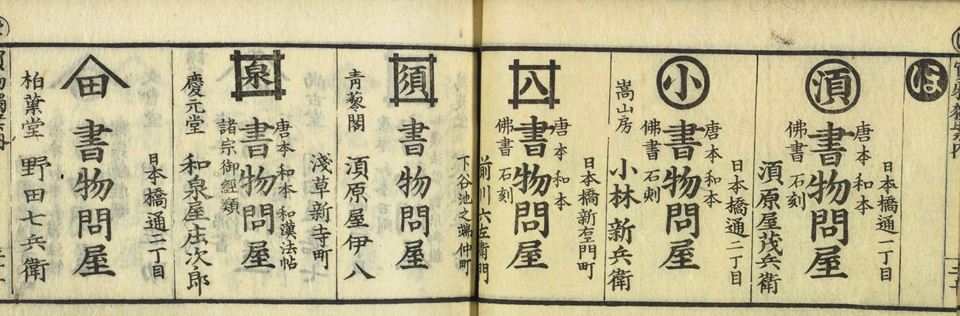 ほ
須
日本橋通一丁目
唐本和本
書物問屋
佛書石刻
須原屋茂兵衛
小
日本橋通二丁目
唐本和本
書物問屋
佛書石刻
嵩山房
小林新兵衛
八
日本橋新右エ門町
唐本和本
書物問屋
佛書石刻
前川六左衛門
下谷池之端仲町
須
淺草新寺町
書物問屋
青藜閣
須原屋伊八
泉
唐本和本和漢法帖
書物問屋
諸宗御經類
慶元堂
和泉屋庄次郎
田
日本橋通二丁目
書物問屋
柏葉堂
野田七兵衛